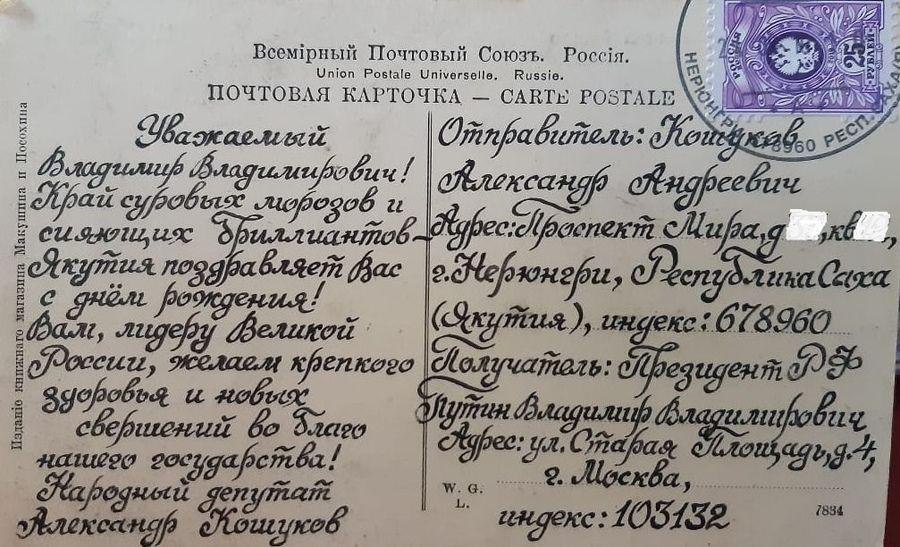 Всемірный Почтовый Союзъ. Россія.
Union Postale Universelle. Russie.
ПОЧТОВАЯ КАРТОЧКА — CARTE POSTALE
Уважаемый
Владимир Владимирович!
Край суровых морозов и
сияющих бриллиантов –
Якутия поздравляет Вас
с днём рождения!
Вам, лидеру Великой
России, желаем крепкого
здоровья и новых
свершений во благо
нашего государства!
Народный депутат
Александр Кошуков
Отправитель: Кошуков
Александр Андреевич
Адрес: Проспект Мира, д , кв ,
г. Нерюнгри, Республика Саха
(Якутия), индекс: 678960
Получатель: Президент РФ
Путин Владимир Владимирович
Адрес: ул. Старая Площадь, д. 4,
г. Москва,
индекс: 103132
W. G.
L.
7884
Изданіе книжнаго магазина Макушина и Посохина
РОССИЯ
25
РУБЛЕЙ
НЕРЮНГРИ 678960 РЕСП.САХА(Я)